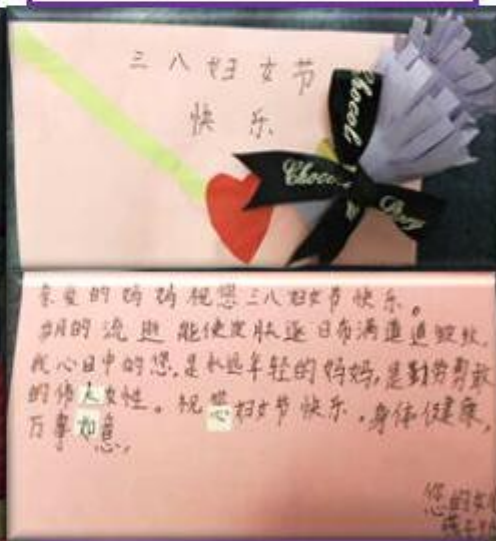 三八妇女节
快乐
Chocol
Choco
亲爱的妈妈祝您三八妇女节快乐。
岁月的流逝能使皮肤逐日布满道道皱纹,
我心目中的您,是永远年轻的妈妈,是勤劳勇敢
的伟大女性。祝您妇女节快乐,身体健康,
万事如意。
您的女